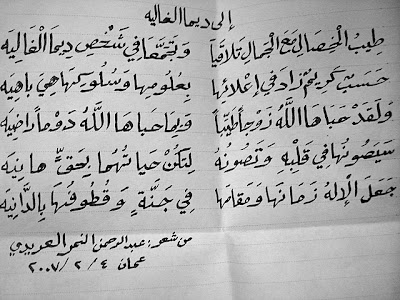 إلى ديما الغاليه
طِيبُ الخِصَالِ مَعَ الجَمَالِ تَلَاقَيَا وَتَجَمَّعَا فِي شَخْصِ دِيمَا الْغَالِيَه
حَسَبٌ كَرِيمٌ زَادَ فِي إعْلَائِهَا بِعُلُومِهَا وَسُلُوكِهَا هِيَ بَاهِيَه
وَلَقَدْ حَبَاهَا اللَّهُ زَوْجاً طَيِّباً وَبِمَا حَبَاهَا اللَّهُ دَوْماً رَاضِيَه
سَيَصُونُهَا فِي قَلْبِهِ وَتَصُونُهُ لِتَكُنْ حَيَاتُهُمَا بِحَقٍّ هَانِيَه
جَعَلَ الإِلَهُ زَمَانَهَا وَمَقَامَهَا فِي جَنَّةٍ وَقُطُوفُهَا بِالدَّانِيَه
من شعر: عبدالرحمن النمر العريدي
عمان ٤ / ٢ / ٢٠٠٧